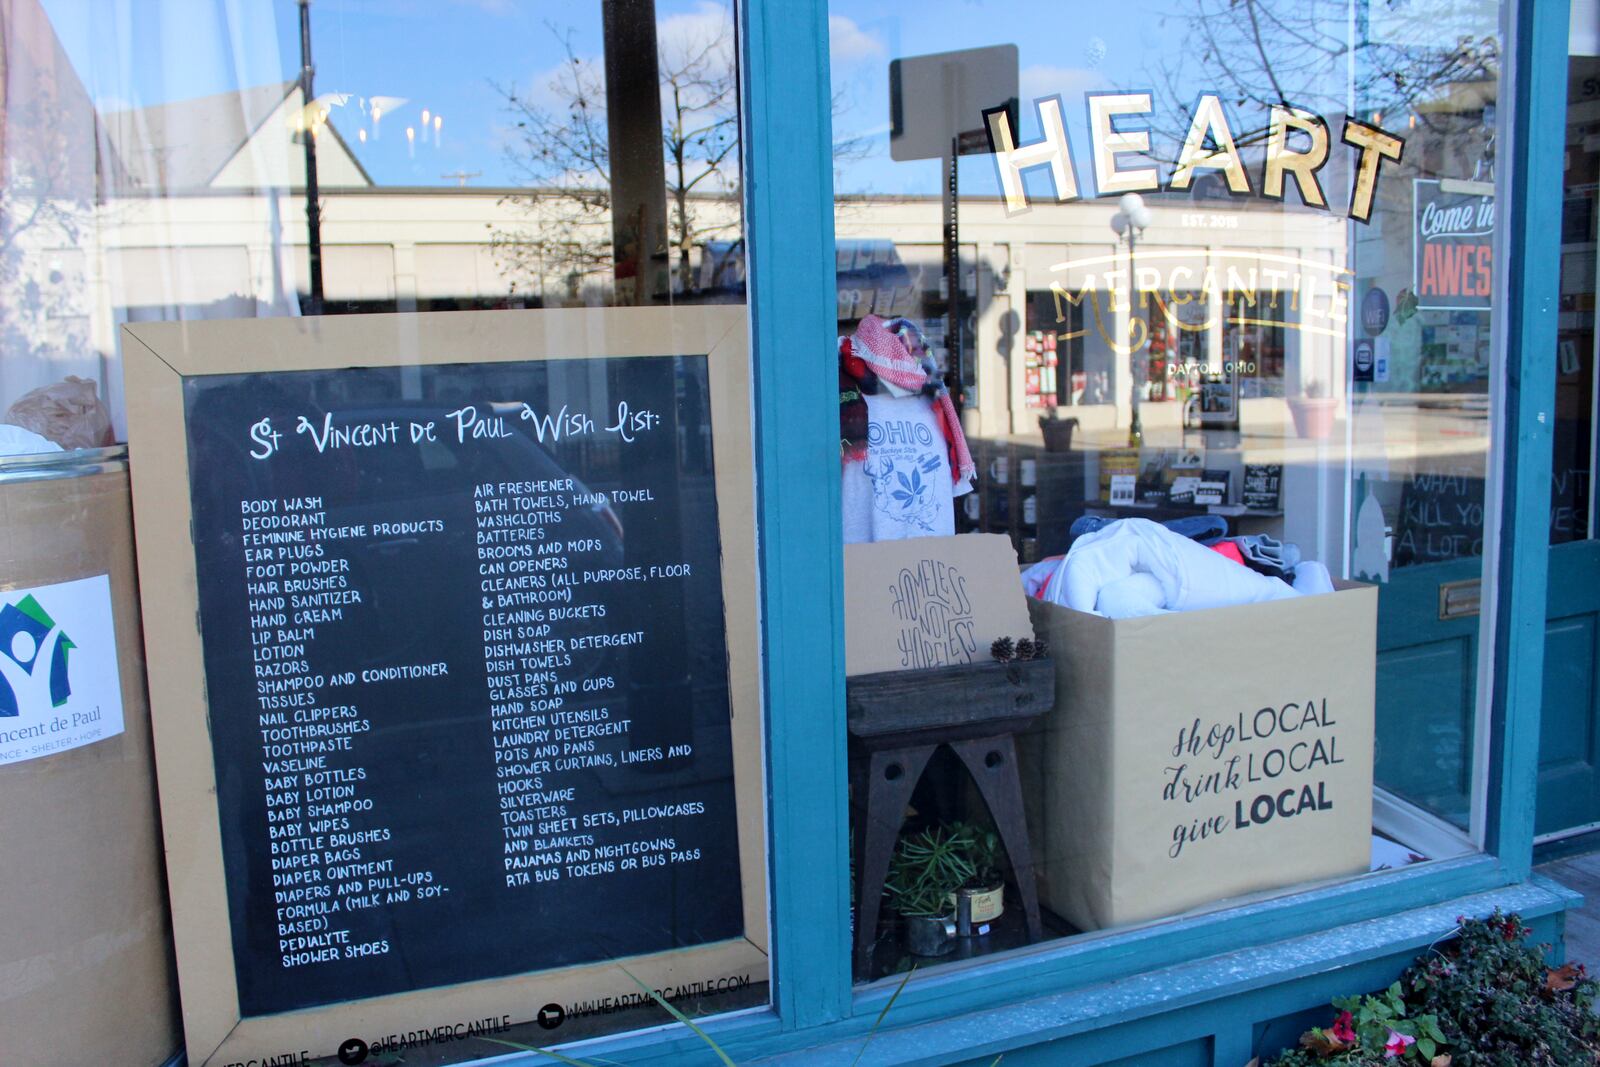 St Vincent de Paul Wish List:
BODY WASH
DEODORANT
FEMININE HYGIENE PRODUCTS
EAR PLUGS
FOOT POWDER
HAIR BRUSHES
HAND SANITIZER
HAND CREAM
LIP BALM
LOTION
RAZORS
SHAMPOO AND CONDITIONER
TISSUES
NAIL CLIPPERS
TOOTHBRUSHES
TOOTHPASTE
VASELINE
BABY BOTTLES
BABY LOTION
BABY SHAMPOO
BABY WIPES
BOTTLE BRUSHES
DIAPER BAGS
DIAPER OINTMENT
DIAPERS AND PULL-UPS
FORMULA (MILK AND SOY-
BASED)
PEDIALYTE
SHOWER SHOES
AIR FRESHENER
BATH TOWELS, HAND TOWEL
WASHCLOTHS
BATTERIES
BROOMS AND MOPS
CAN OPENERS
CLEANERS (ALL PURPOSE, FLOOR
& BATHROOM)
CLEANING BUCKETS
DISH SOAP
DISHWASHER DETERGENT
DISH TOWELS
DUST PANS
GLASSES AND CUPS
HAND SOAP
KITCHEN UTENSILS
LAUNDRY DETERGENT
POTS AND PANS
SHOWER CURTAINS, LINERS AND
HOOKS
SILVERWARE
TOASTERS
TWIN SHEET SETS, PILLOWCASES
AND BLANKETS
PAJAMAS AND NIGHTGOWNS
RTA BUS TOKENS OR BUS PASS
ncent de Paul
NCE • SHELTER • HOPE
ERCANTILE
@HEARTMERCANTILE
WWW.HEARTMERCANTILE.COM
HEART
EST. 2015
MERCANTILE
DAYTON, OHIO
Come in
AWES
WiFi
OHIO
The Buckeye State
HOMELESS
NOT
HOPELESS
shop LOCAL
drink LOCAL
give LOCAL
WHAT
KILL YO
A LOT